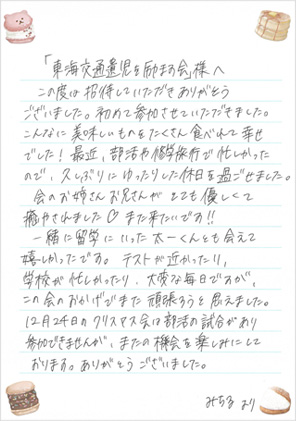 「東海交通遺児を励ます会」様へ
この度は招待していただきありがとう
ございました。初めて参加させていただきました。
こんなに美味しいものをたくさん食べれて幸せ
でした！最近、部活や修学旅行で忙しかった
ので、久しぶりにゆったりした休日を過ごせました。
会のお姉さんお兄さんがとても優しくて
癒やされました♡また来たいです!!
一緒に留学にいった太一くんとも会えて
嬉しかったです。テストが近かったり、
学校が忙しかったり、大変な毎日ですが、
この会のおかげでまた頑張ろうと思えました。
12月24日のクリスマス会は部活の試合があり
参加できませんが、またの機会を楽しみにして
おります。ありがとうございました。
みちる より